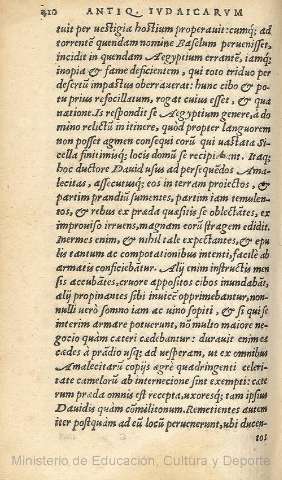 410 ANTIQ. IVDAICARVM
tuit per uestigia hostium properauit: cumq; ad
torrentē quendam nomine Baselum peruenisset,
incidit in quendam Aegyptium errantē, iamq;
inopia & fame deficientem, qui toto triduo per
desertū impastus oberrauerat: hunc cibo & po
tu prius refocillatum, rogat cuius esset, & qua
natione. Is respondit se Aegyptium genere, à do
mino relictū in itinere, quòd propter languorem
non posset agmen consequi corū qui uastata Si
cella finitimisq; locis domū se recipiebant. Itaq;
hoc ductore Dauid usus ad persequēdos Ama-
lecitas, assecutusq; eos in terram proiectos, &
partim prandiū sumentes, partim iam temulen-
tos, & rebus ex præda quæsitis se oblectātes, ex
improuiso irruens, magnam eorū stragem edidit.
Inermes enim, & nihil tale expectantes, & epu
lis tantum ac compotationibus intenti, facilè ab
armatis conficiebātur. Alij enim instructis men
sis accubātes, cruore appositos cibos inundabāt,
alij propinantes sibi inuicē opprimebantur, non-
nulli verò somno iam ac uino sopiti, & si qui se
interim armare potuerunt, nō multo maiore ne-
gocio quàm cæteri cædebantur: durauit enim ea
cædes à prādio usq; ad uesperam, ut ex omnibus
Amalecitarū copijs ægrè quadringenti celeri-
tate camelorū ab internecione sint exempti: cæte
rum præda omnis est recepta, uxoresq; tam ipsius
Dauidis quàm cōmilitonum. Remetientes autem
iter postquàm ad eū locū peruenerunt, ubi ducen-
tos
Ministerio de Educación, Cultura y Deporte